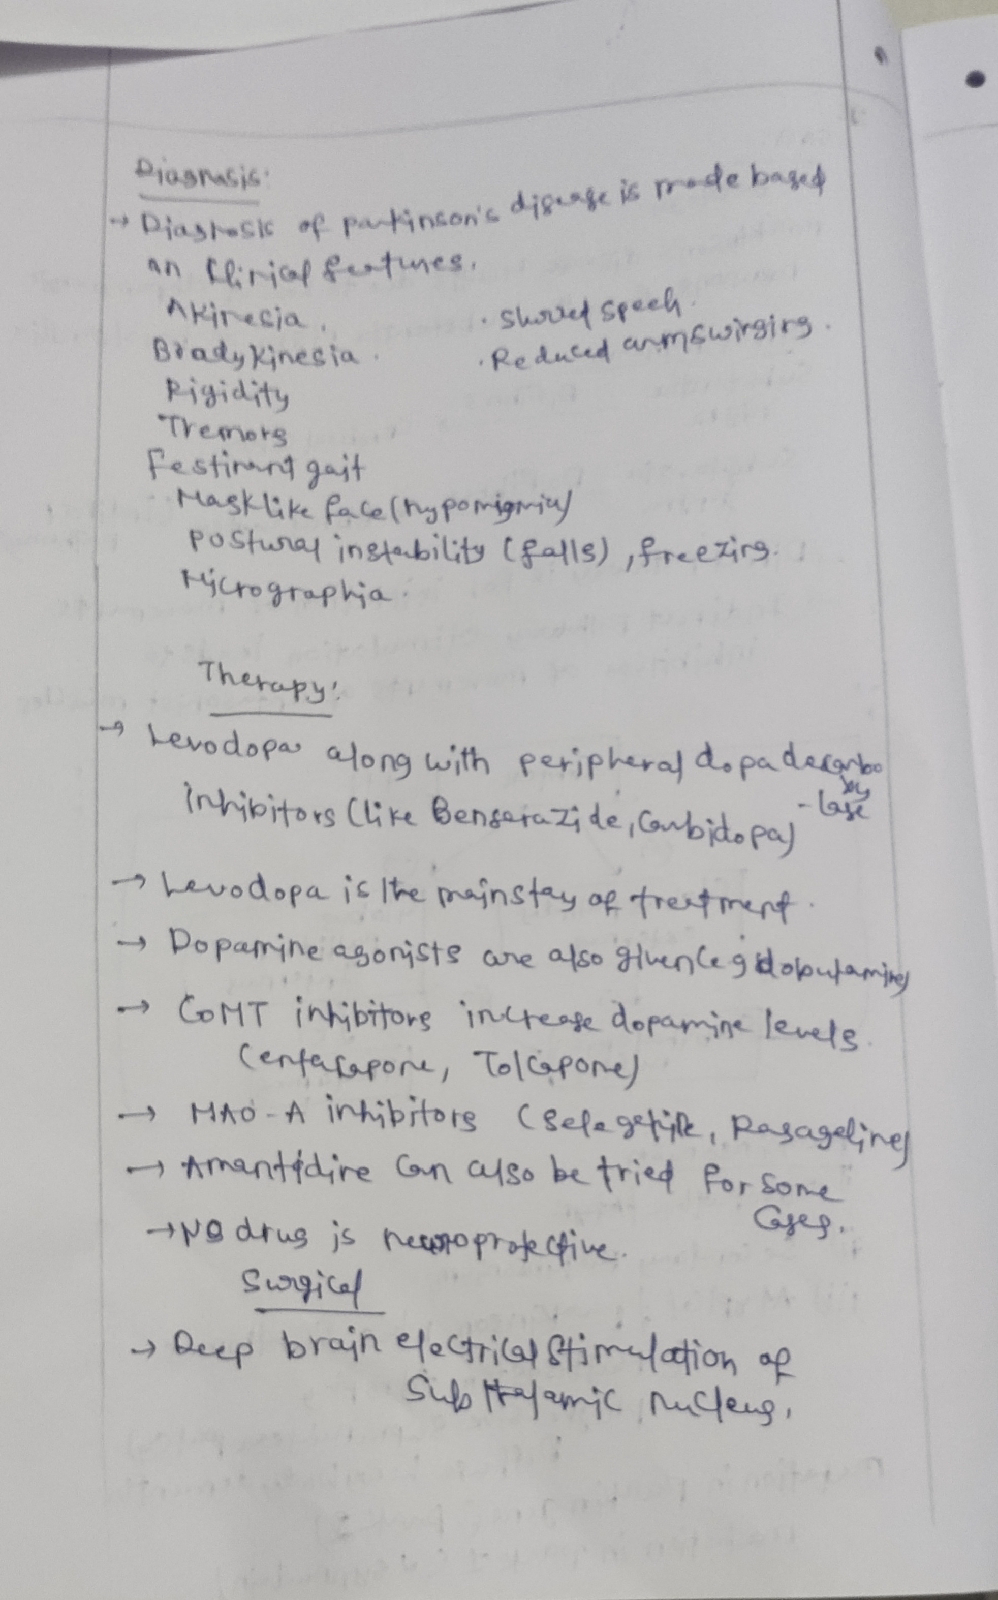 Diagnosis:
→ Diagnosis of parkinson's disease is made based
on Clinical features.
Akinesia.
Bradykinesia.
Rigidity
Tremors
Festinant gait
Masklike face (hypomimia)
Postural instability (falls), freezing.
Micrographia.
. Slurred speech.
. Reduced armswinging.
Therapy:
→ Levodopa along with peripheral dopa decarboxy
-lase
inhibitors (like Benserazide, Carbidopa)
→ Levodopa is the mainstay of treatment.
→ Dopamine agonists are also given (eg dobutamine)
→ COMT inhibitors increase dopamine levels.
(entacapone, Tolcapone)
→ MAO-A inhibitors (Selegeline, Rasageline)
→ Amantidine can also be tried for some
cases.
→ No drug is neuroprotective.
Surgical
→ Deep brain electrical stimulation of
Subthalamic nucleus.